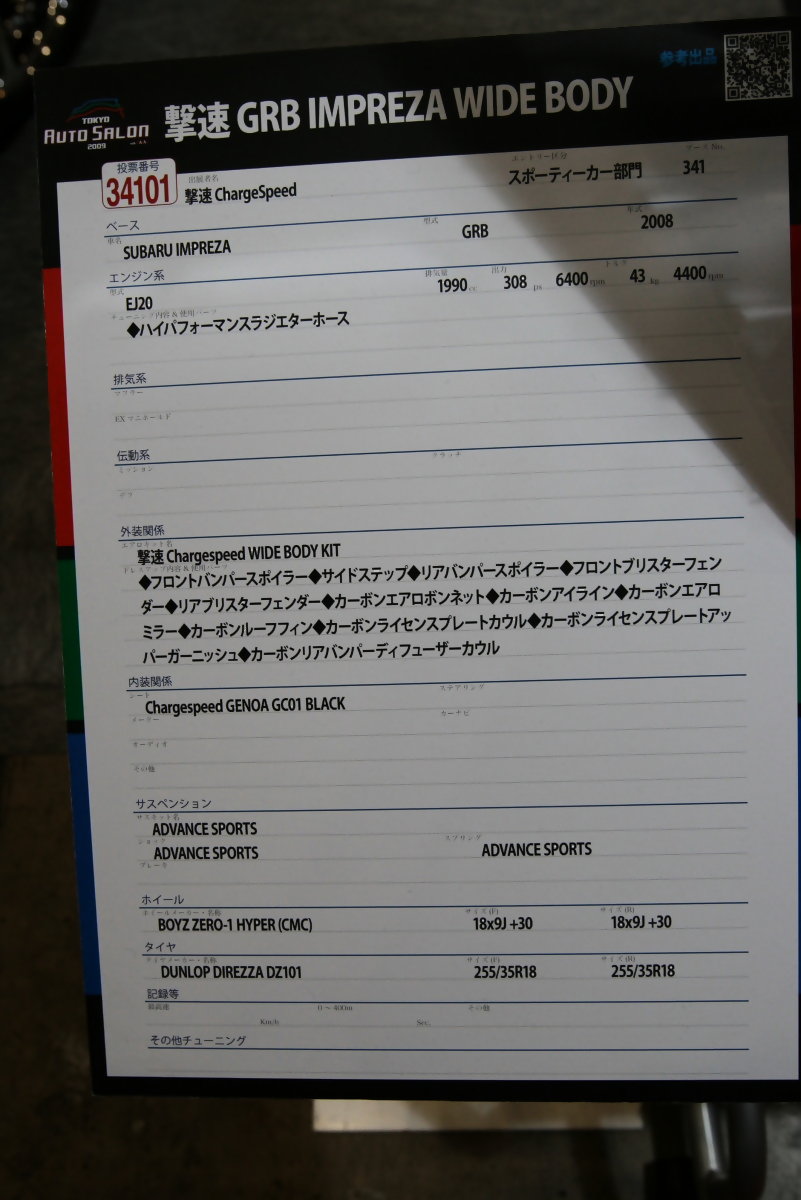 参考出品
TOKYO
AUTO SALON
2009
撃速 GRB IMPREZA WIDE BODY
投票番号
34101
出展者名
撃速 ChargeSpeed
エントリー区分
スポーティーカー部門
ブースNo.
341
ベース
車名
SUBARU IMPREZA
型式
GRB
年式
2008
エンジン系
型式
EJ20
排気量
1990 cc
出力
308 ps 6400 rpm
トルク
43 kg 4400 rpm
チューニング内容&使用パーツ
◆ハイパフォーマンスラジエターホース
排気系
マフラー
EXマニホールド
伝動系
ミッション
クラッチ
デフ
外装関係
エアロキット名
撃速 Chargespeed WIDE BODY KIT
ドレスアップ内容&使用パーツ
◆フロントバンパースポイラー◆サイドステップ◆リアバンパースポイラー◆フロントブリスターフェン
ダー◆リアブリスターフェンダー◆カーボンエアロボンネット◆カーボンアイライン◆カーボンエアロ
ミラー◆カーボンルーフフィン◆カーボンライセンスプレートカウル◆カーボンライセンスプレートアッ
パーガーニッシュ◆カーボンリアバンパーディフューザーカウル
内装関係
シート
Chargespeed GENOA GC01 BLACK
ステアリング
メーター
カーナビ
オーディオ
その他
サスペンション
サスキット名
ADVANCE SPORTS
ショック
ADVANCE SPORTS
スプリング
ADVANCE SPORTS
ブレーキ
ホイール
ホイールメーカー・名称
BOYZ ZERO-1 HYPER (CMC)
サイズ(F)
18x9J +30
サイズ(R)
18x9J +30
タイヤ
タイヤメーカー・名称
DUNLOP DIREZZA DZ101
サイズ(F)
255/35R18
サイズ(R)
255/35R18
記録等
最高速
Km/h
0～400m
Sec.
その他
その他チューニング